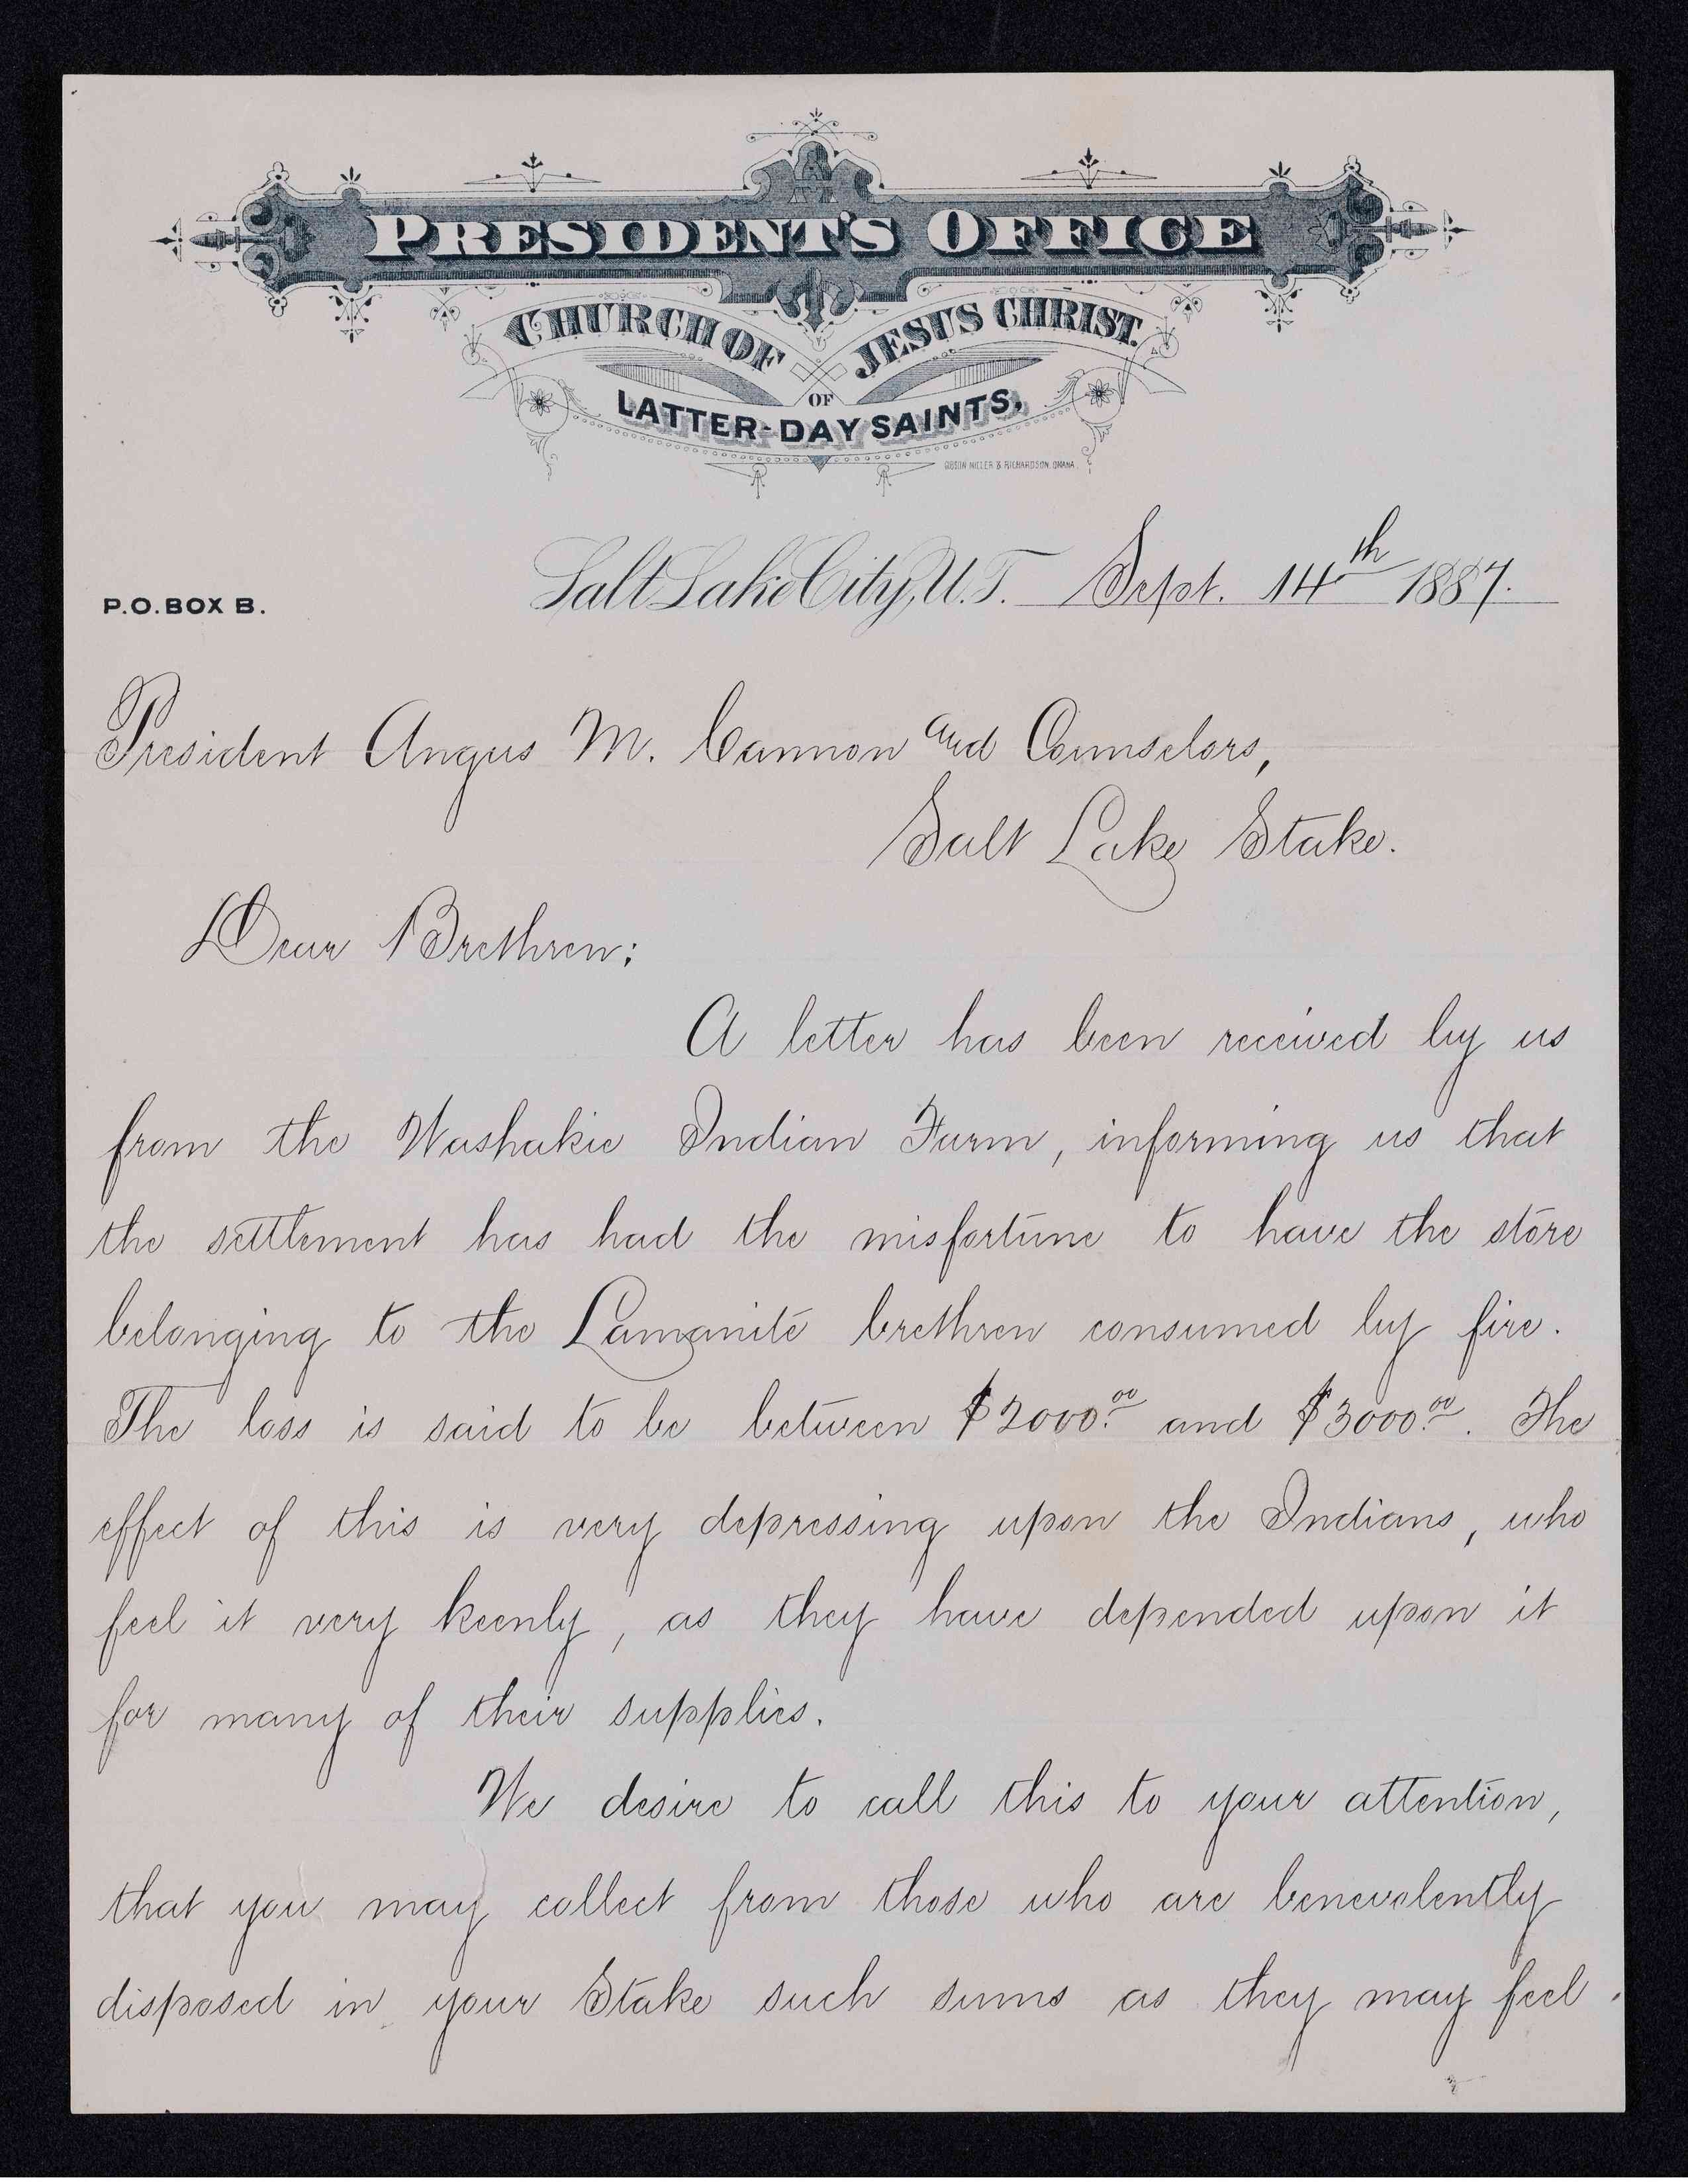 PRESIDENT'S OFFICE
CHURCH OF JESUS CHRIST.
OF
LATTER-DAY SAINTS,
GIBSON MILLER & RICHARDSON, OMAHA.
P.O. BOX B.
Salt Lake City, U.T. Sept. 14th 1887.
President Angus M. Cannon and Counselors,
Salt Lake Stake.
Dear Brethren:
A letter has been received by us
from the Washakie Indian Farm, informing us that
the settlement has had the misfortune to have the store
belonging to the Lamanite brethren consumed by fire.
The loss is said to be between $2000.00 and $3000.00. The
effect of this is very depressing upon the Indians, who
feel it very keenly, as they have depended upon it
for many of their supplies.
We desire to call this to your attention,
that you may collect from those who are benevolently
disposed in your Stake such sums as they may feel